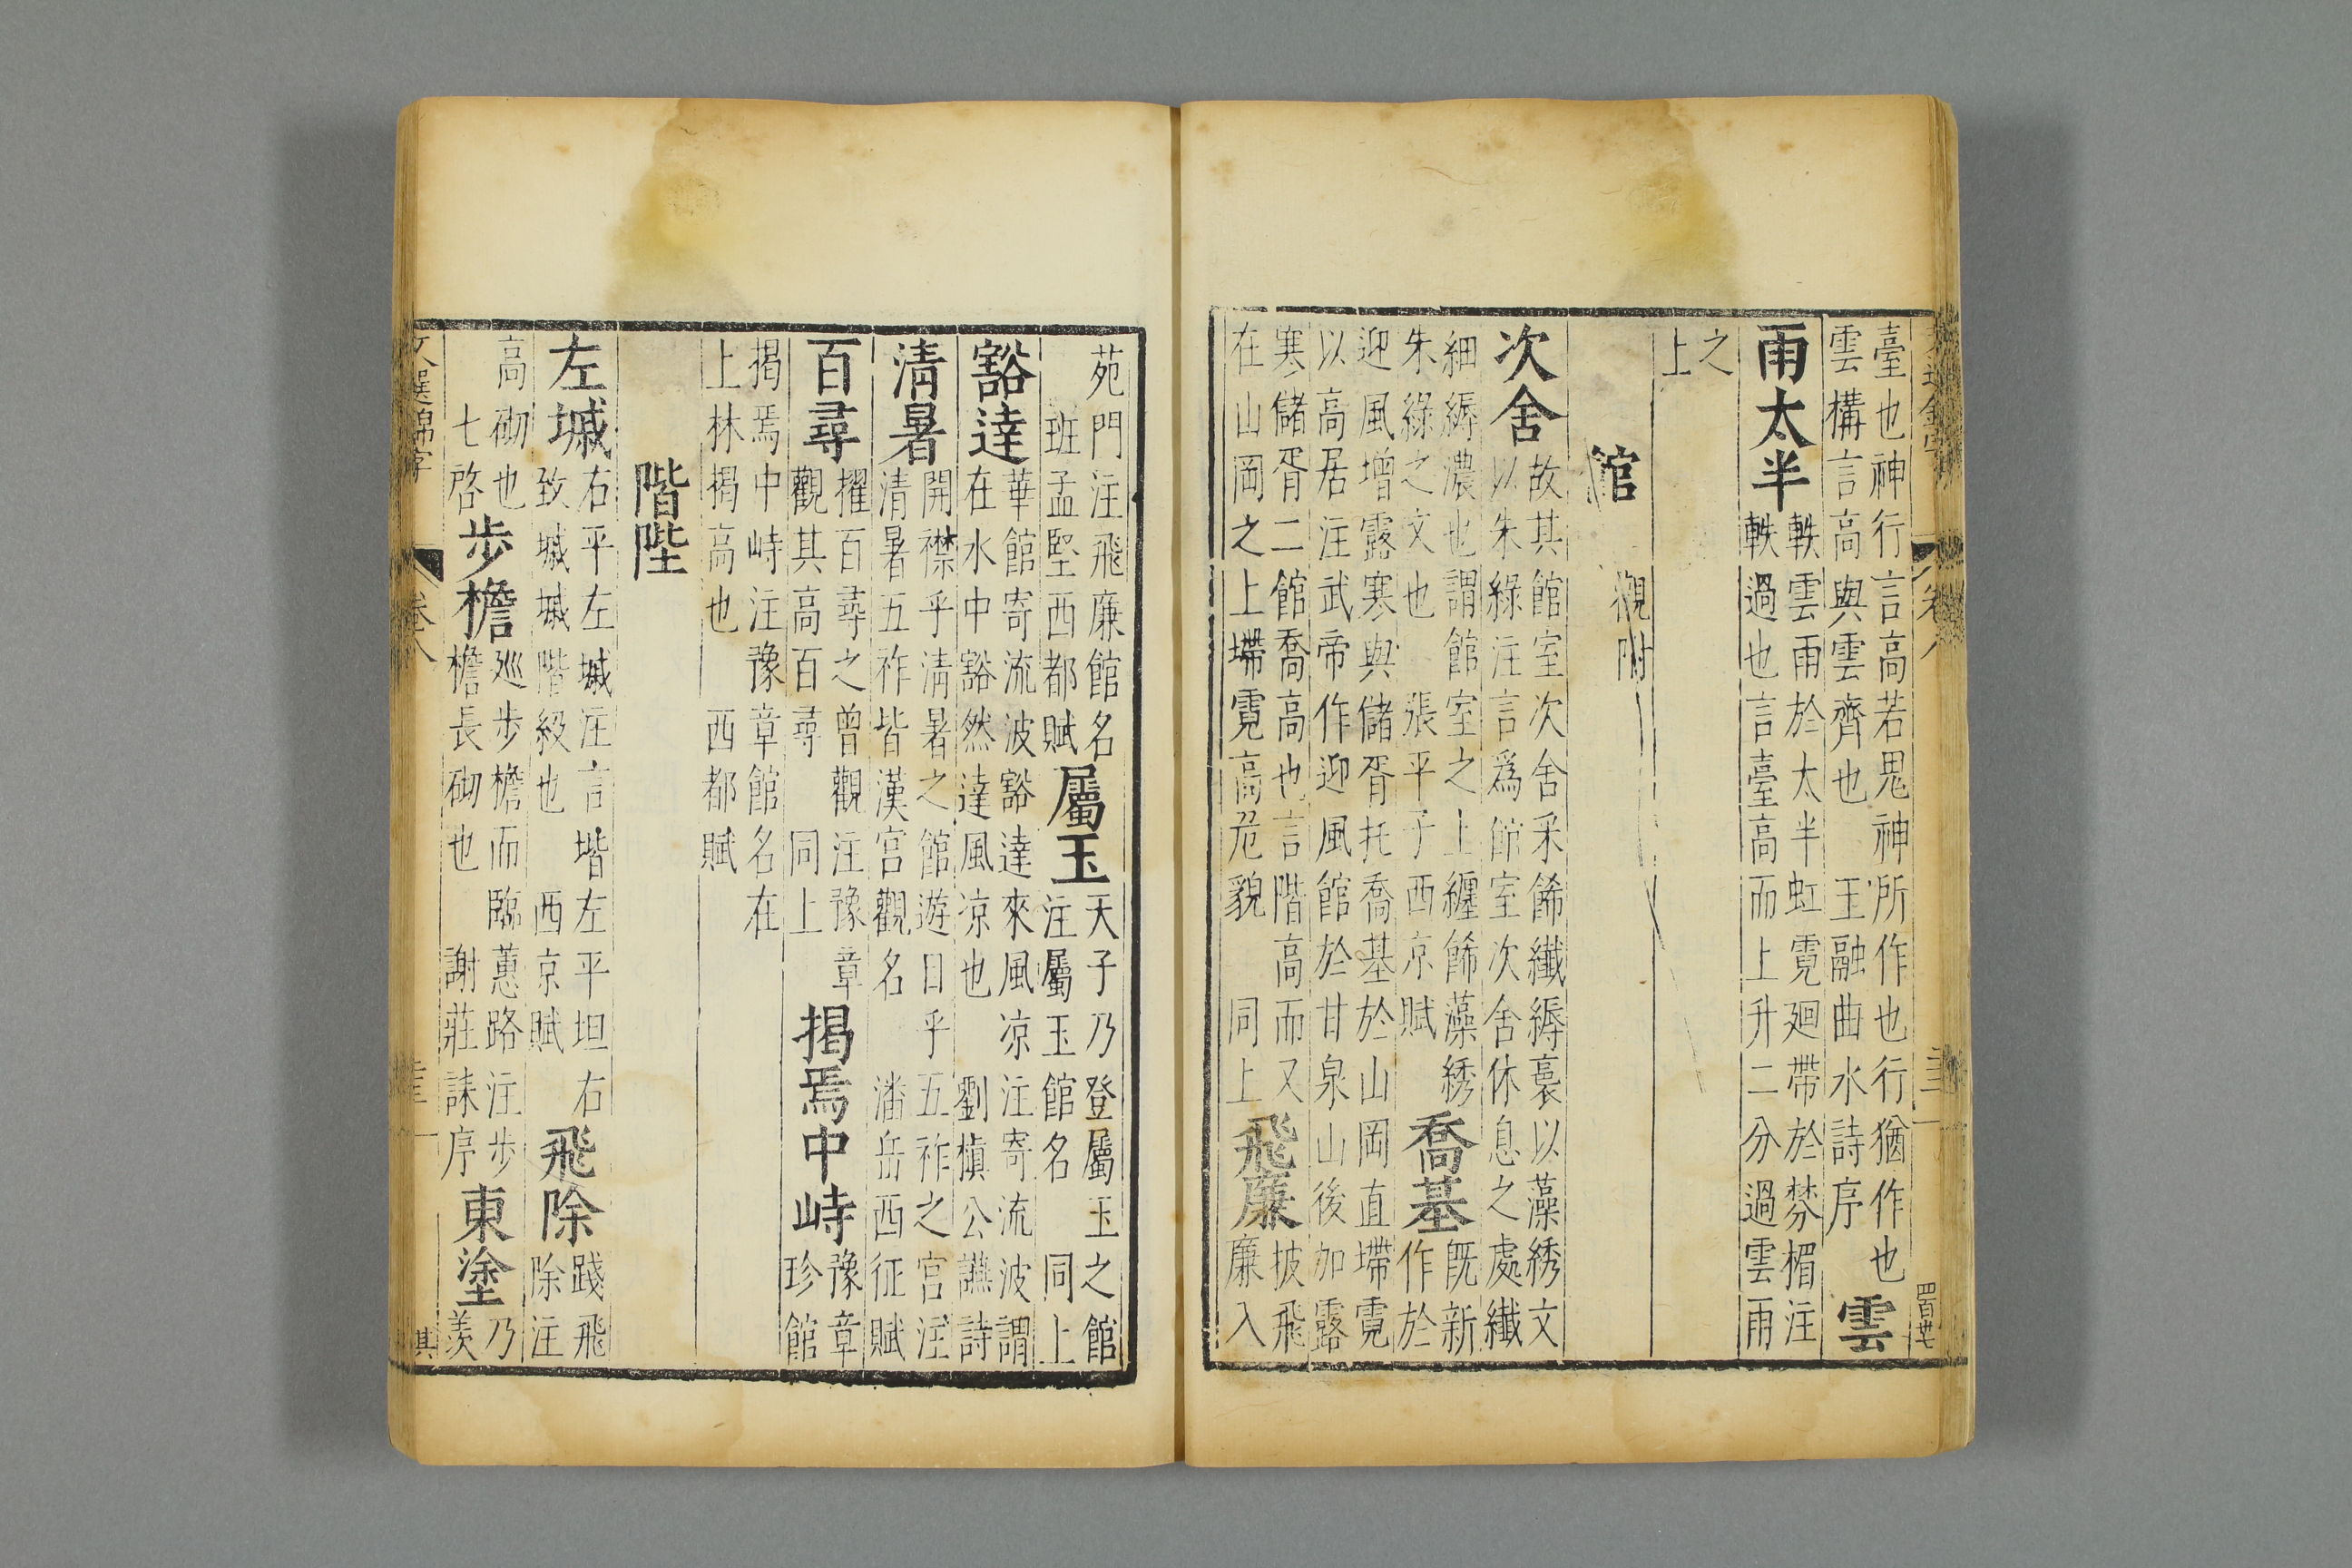 臺也神行言高若鬼神所作也行猶作也
雲構言高與雲齊也　王融曲水詩序　雲
雨太半軼雲雨於太半虹霓廻帶於棼楣注
軼過也言臺高而上升二分過雲雨
之
上
館　觀附
次舍故其館室次舍采飾纖縟裛以藻綉文
以朱綠注言為館室次舍休息之處纖
細縟濃也謂館室之上纏飾藻綉
朱綠之文也　張平子西京賦　喬基既新
作於
迎風增露寒與儲胥托喬基於山岡直墆霓
以高居注武帝作迎風館於甘泉山後加露
寒儲胥二館喬高也言階高而又
在山岡之上墆霓高危貌　同上　飛廉披飛
廉入
苑門注飛廉館名
班孟堅西都賦　屬玉天子乃登屬玉之館
注屬玉館名　同上
豁達華館寄流波豁達來風凉注寄流波謂
在水中豁然達風凉也　劉楨公讌詩
清暑開襟乎清暑之館遊目乎五祚之宮注
清暑五祚皆漢宮觀名　潘岳西征賦
百尋擢百尋之曾觀注豫章
觀其高百尋　同上　揭焉中峙豫章
珍館
揭焉中峙注豫章館名在
上林揭高也　西都賦
階陛
左墄右平左墄注言堦左平坦右
致墄墄階級也　西京賦　飛除踐飛
除注
高砌也
七啓　步櫩廵步櫩而臨蕙路注步
櫩長砌也　謝莊誄序　東塗乃
羨
文選錦字
卷八
其
卷八
四百廿七